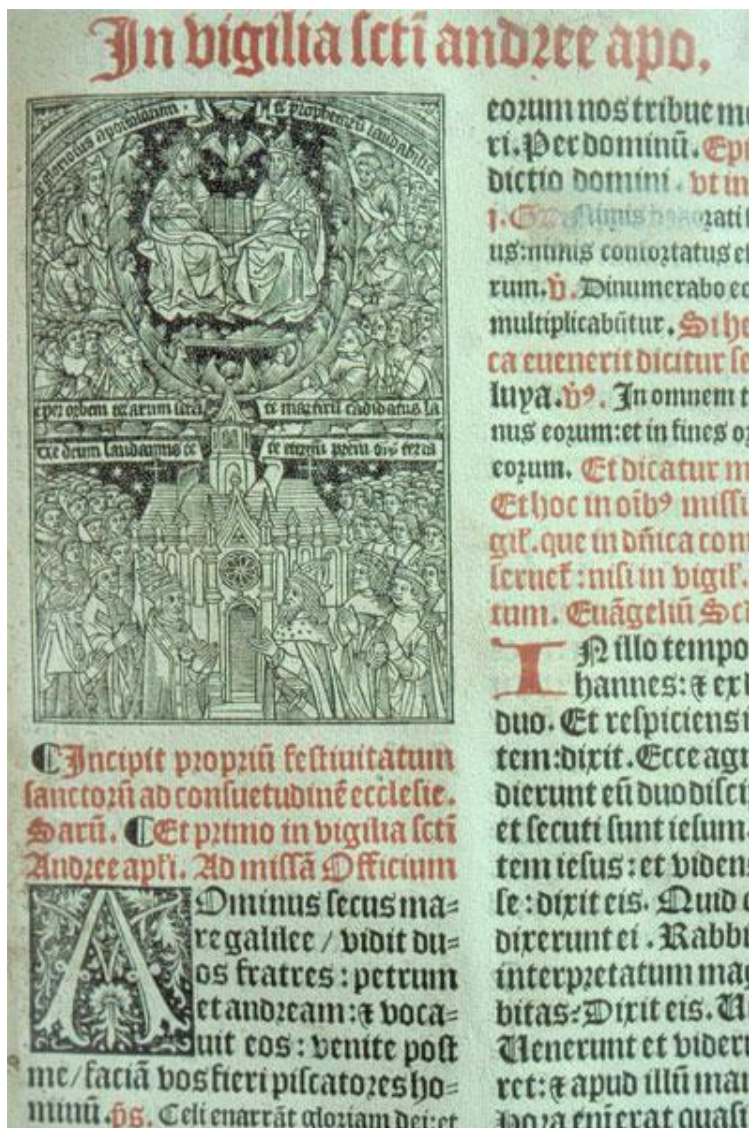 In vigilia scti andree apo.
te gloriosus apostolorum
te prophetarū laudabilis
te per orbem terrarum sancta
te martirū cādidatus la
exe deum laudamus te
te eternū prem oīs terra
❡Incipit propriū festiuitatum
sanctorū ad consuetudinē ecclesie.
Sarū. ❡Et primo in vigilia scti
Andree apłi. Ad missā Officium
AOminus secus ma⸗
re galilee / vidit du⸗
os fratres : petrum
et andream : ⁊ voca⸗
uit eos : venite post
me / faciā vos fieri piscatores ho⸗
minū. p̄s. Celi enarrāt gloriam dei : et
eorum nos tribue mu
ri. Per dominū. Epi
dictio domini. vt in
Nimis honorati
us : nimis confortatus e
rum. v̄. Dinumerabo eo
multiplicabūtur. Si ho
ca euenerit dicitur se
luya. v̄ꝰ. In omnem t
nus eorum : et in fines o
eorum. Et dicatur m
Et hoc in oībꝰ missi
gil̄. que in dn̄ica con
seruet̄ : nisi in vigil̄
tum. Euāgeliū Sc
IN illo tempo
hannes : ⁊ ex
duo. Et respiciens i
tem : dixit. Ecce ag
dierunt eū duo disci
et secuti sunt iesum
tem iesus : et videns
se : dixit eis. Quid
dixerunt ei. Rabbi
interpretatum mag
bitas? Dixit eis. U
Uenerunt et videru
ret : ⁊ apud illū man
hora enī erat quasi